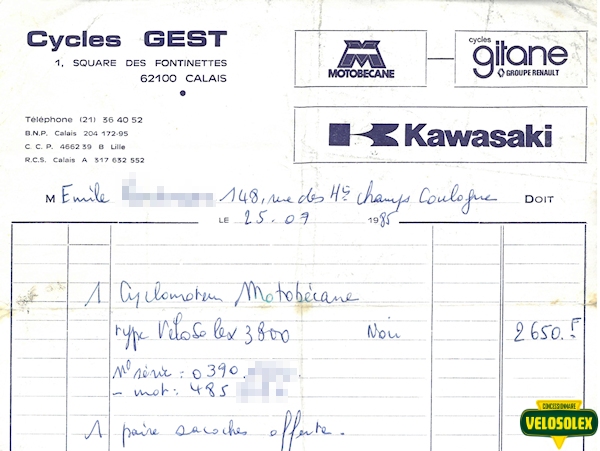 Cycles GEST
1, SQUARE DES FONTINETTES
62100 CALAIS
MOTOBECANE
cycles
gitane
GROUPE RENAULT
Kawasaki
Téléphone (21) 36 40 52
B.N.P. Calais 204 172-95
C. C. P. 4662 39 B Lille
R.C.S. Calais A 317 632 552
M Emile 148, rue des Hts champs Coulogne DOIT
LE 25.07 1985
1 Cyclomoteur Motobécane
type VéloSolex 3800 Noir 2650.F
N° série : 0390.
- mot : 485
1 paire sacoches offerte.
CONCESSIONNAIRE
VELOSOLEX